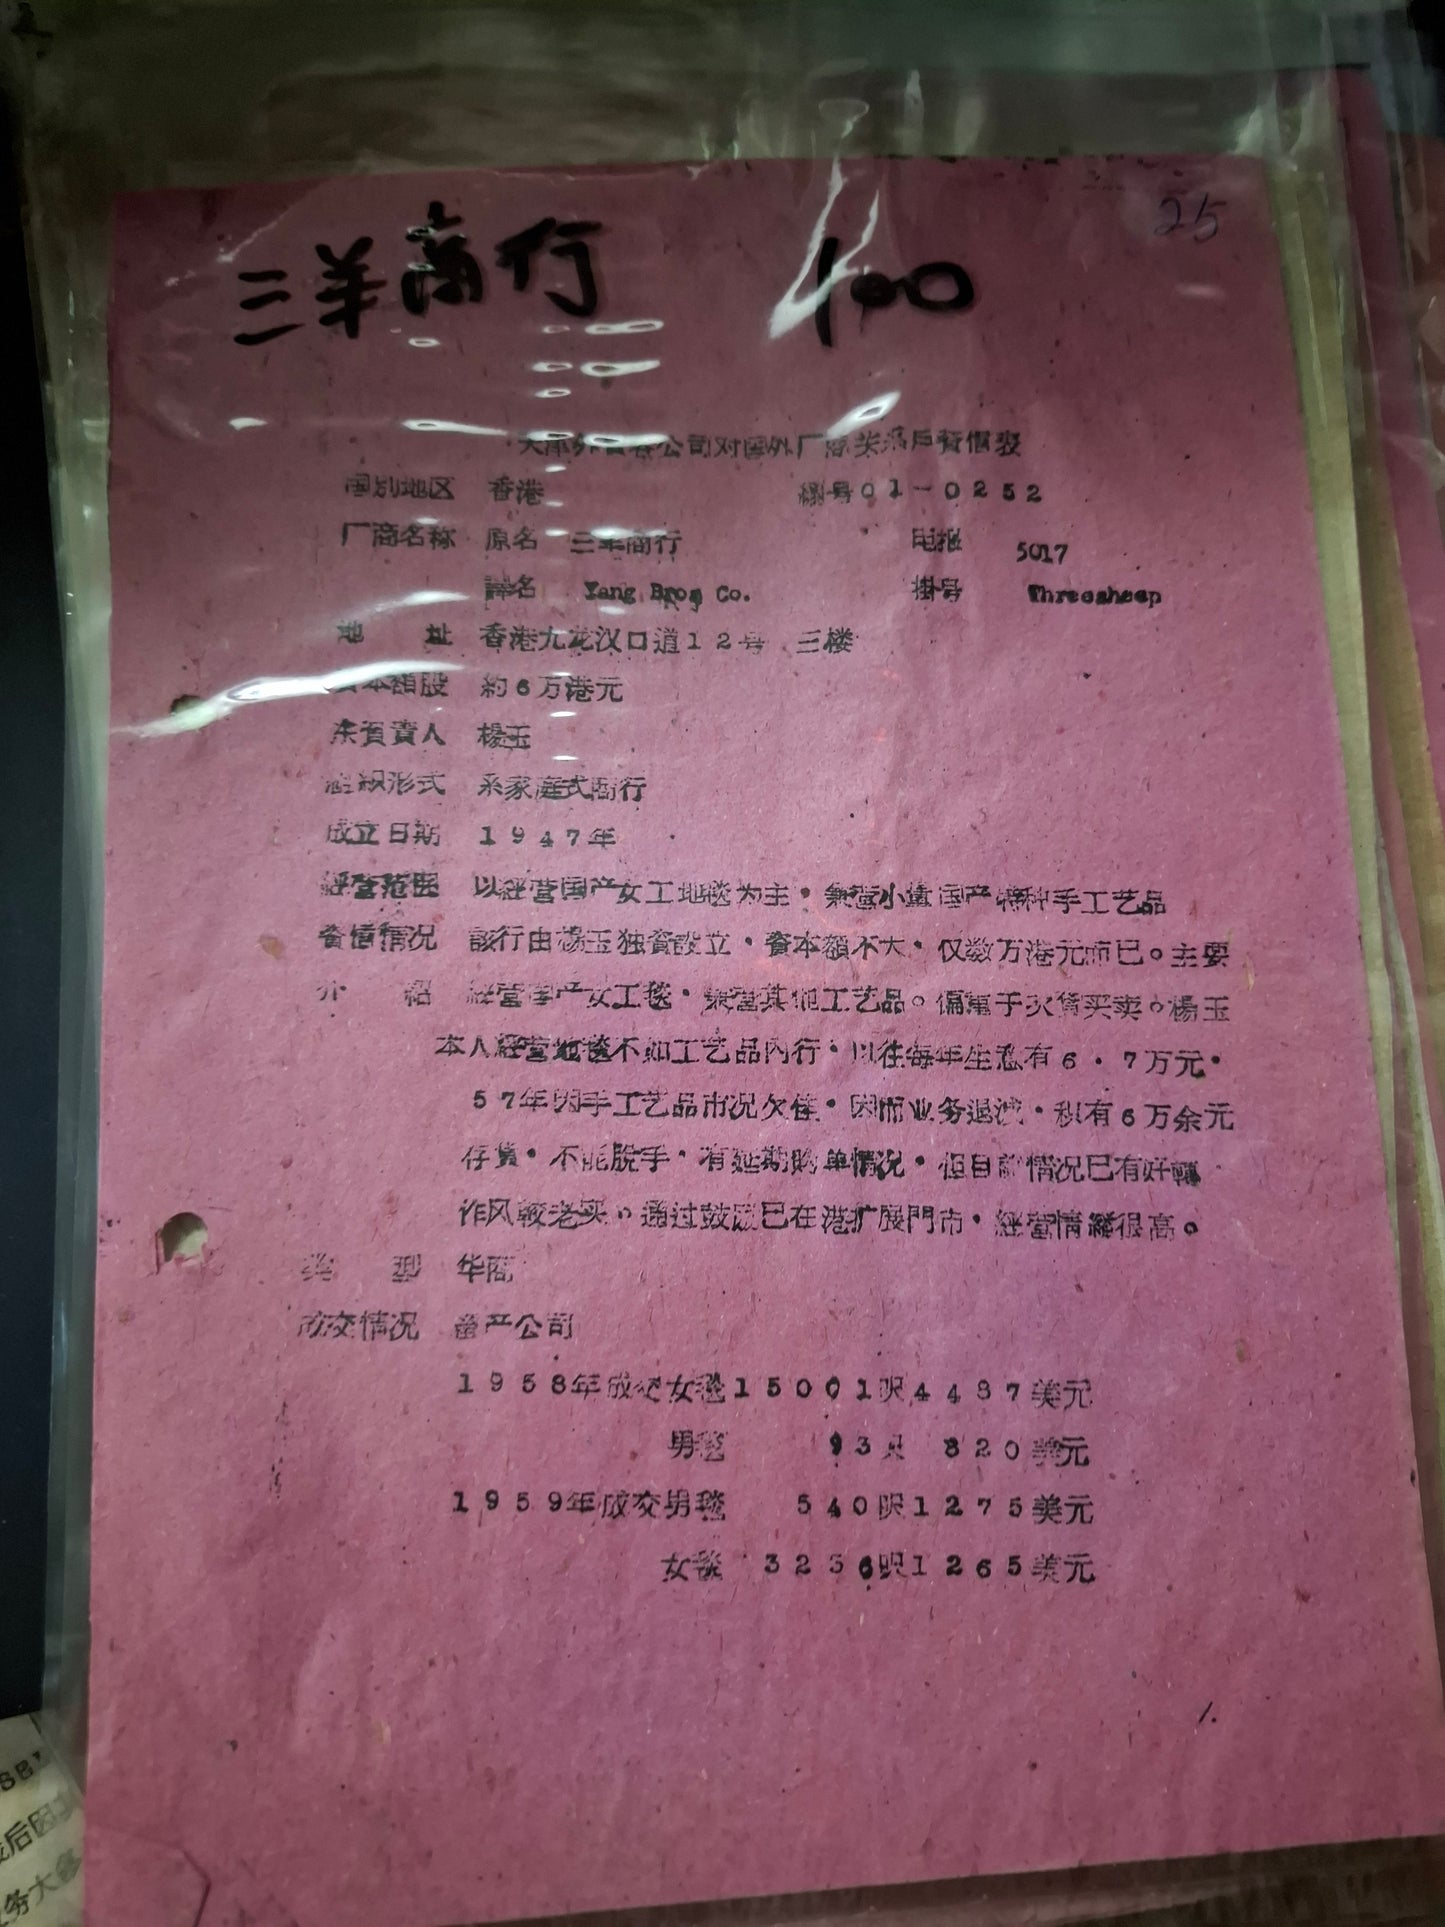 25
三羊商行 100
公司对国外厂商关系戶資信表
国别地区 香港 編号01-0252
厂商名称 原名 三羊商行 电报 5017
譯名 Yang Bros Co. 掛号 Threesheep
地 址 香港九龙汉口道12号 三楼
資本額股 約6万港元
負責人 楊玉
組织形式 系家庭式商行
成立日期 1947年
經营范囲 以經营国产女工地毯为主·兼营小量国产特种手工艺品
資信情况 該行由楊玉独資設立·資本額不大·仅数万港元而已。主要
介 紹 經营国产女工毯·兼营其他工艺品。偏重于欠貨买卖。楊玉
本人經营地毯不如工艺品內行·以往每年生意有6·7万元·
57年因手工艺品市况欠佳·因而业务退減·积有6万余元
存貨·不能脫手·有延期購单情况·但目前情况已有好轉
作风較老实。通过鼓励已在港扩展門市·經营情緒很高。
类 型 华商
成交情况 畜产公司
1958年成交女毯15001呎4487美元
男毯 93只 820美元
1959年成交男毯 540呎1275美元
女毯 3236呎1265美元
1.
后因
务大